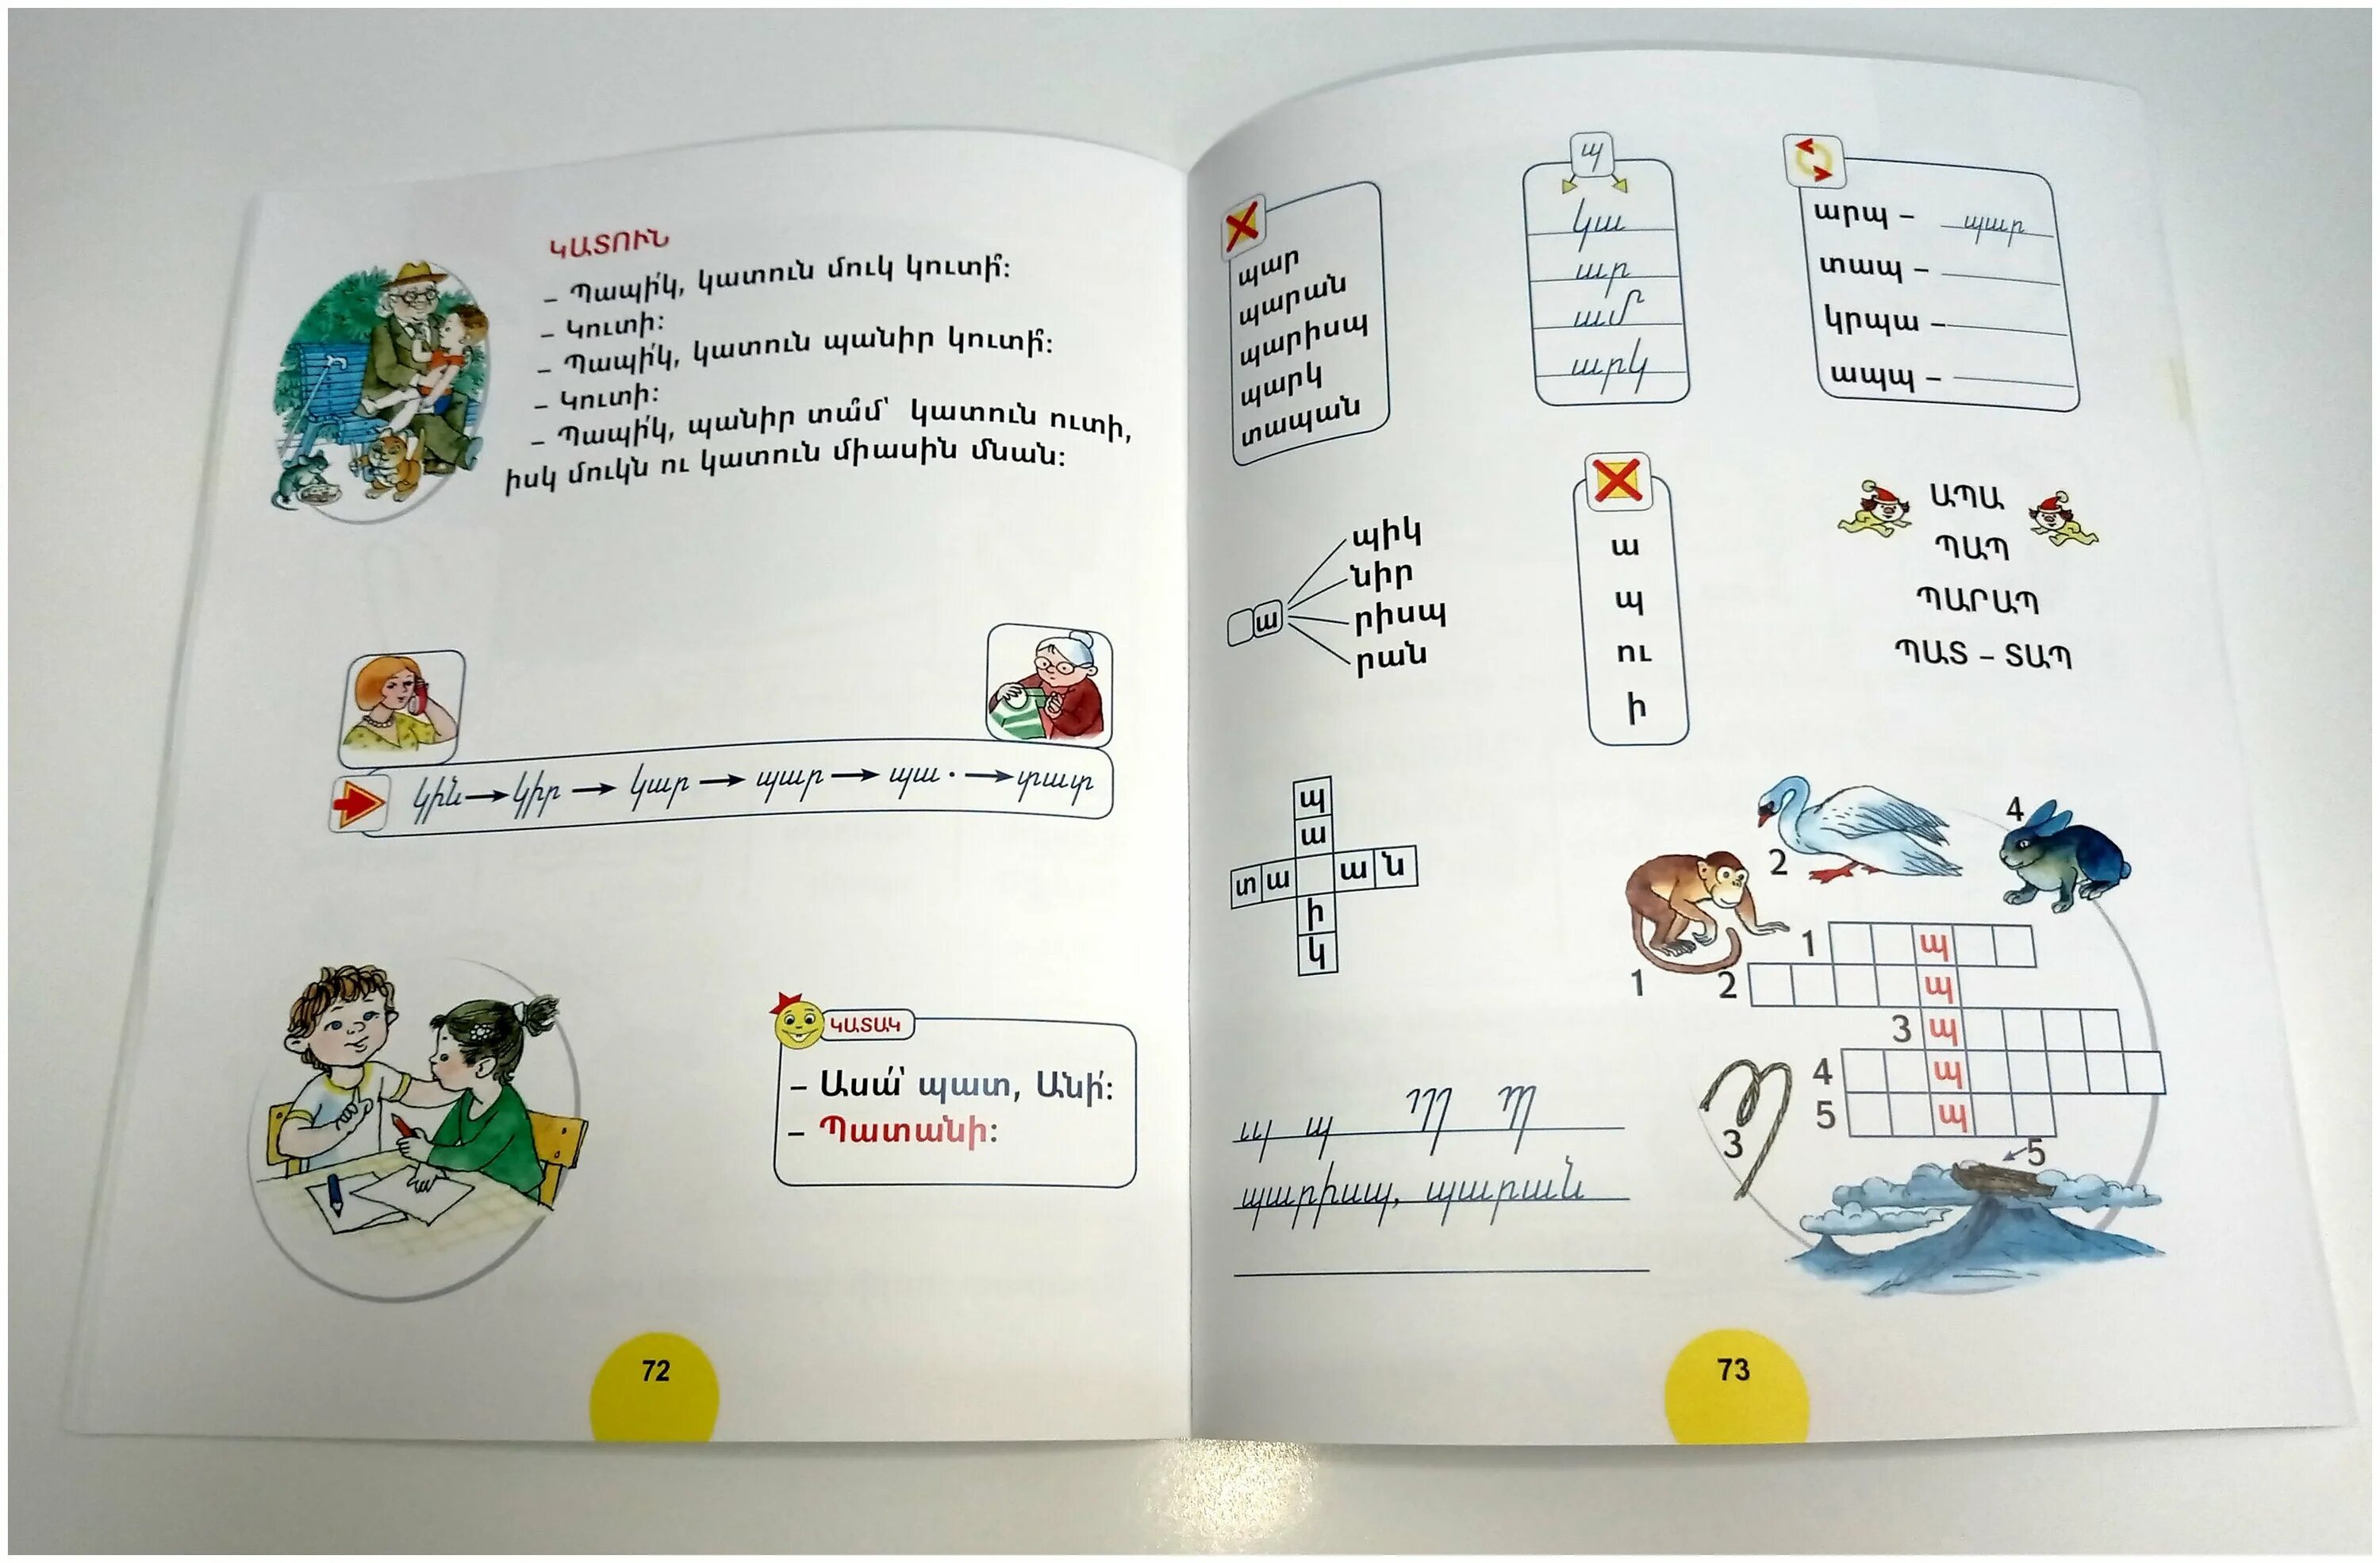 ԿԱՏՈՒՆ
– Պապի՛կ, կատուն մուկ կուտի՞:
– Կուտի:
– Պապի՛կ, կատուն պանիր կուտի՞:
– Կուտի:
– Պապի՛կ, պանիր տա՞մ՝ կատուն ուտի,
իսկ մուկն ու կատուն միասին մնան:
կին → կիր → կար → պար → պա · → տատ
ԿԱՏԱԿ
– Ասա՛՝ պատ, Անի՛:
– Պատանի:
72
պար
պարան
պարիսպ
պարկ
տապան
պ
կա
ար
ամ
արկ
արպ – պար
տապ –
կրպա –
ապպ –
ա
պիկ
նիր
րիսպ
րան
ա
պ
ու
ի
ԱՊԱ
ՊԱՊ
ՊԱՐԱՊ
ՊԱՏ – ՏԱՊ
պ
ա
տ ա ա ն
ի
կ
1
2
4
3
5
1 պ
2 պ
3 պ
4 պ
5 պ
պ պ Պ Պ
պարիսպ, պարան
73